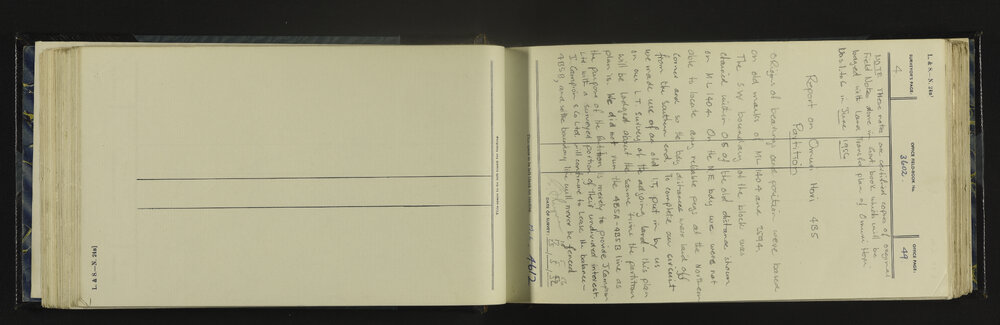 L. & S.—N. 26b
SURVEYOR'S PAGE:
4
OFFICE FIELD-BOOK NO.
3602.
OFFICE PAGE:
49
NOTE These notes are certified copies of original
Field Notes done in book which will be
lodged with Land Transfer plan of Omuri Hori
in June 1956
Report on Omuri Hori 4B5
Partition
Origin of bearings and position were based
on old marks of ML 1404 and
The SW boundary of the block was
chained within 0.8 of the old distance shown
on ML 1404. On the NE bdy we were not
able to locate any reliable pegs at the Northern
corner and so the bdy distances were laid off
from the southern end. To complete our circuit
we made use of an old I.T. put in by us
on our L.T. survey of the adjoining land – this plan
will be lodged about the same time the partition
plan is. We did not run the 4B5A-4B5B line as
the purpose of the Partition is merely to provide J Campion
Ltd with a surveyed portion of their undivided interest
J. Campion & Co Ltd will continue to lease the balance –
4B5B, and so the boundary line will never be fenced
DATE OF SURVEY:
4612
L. & S.—N. 26b]